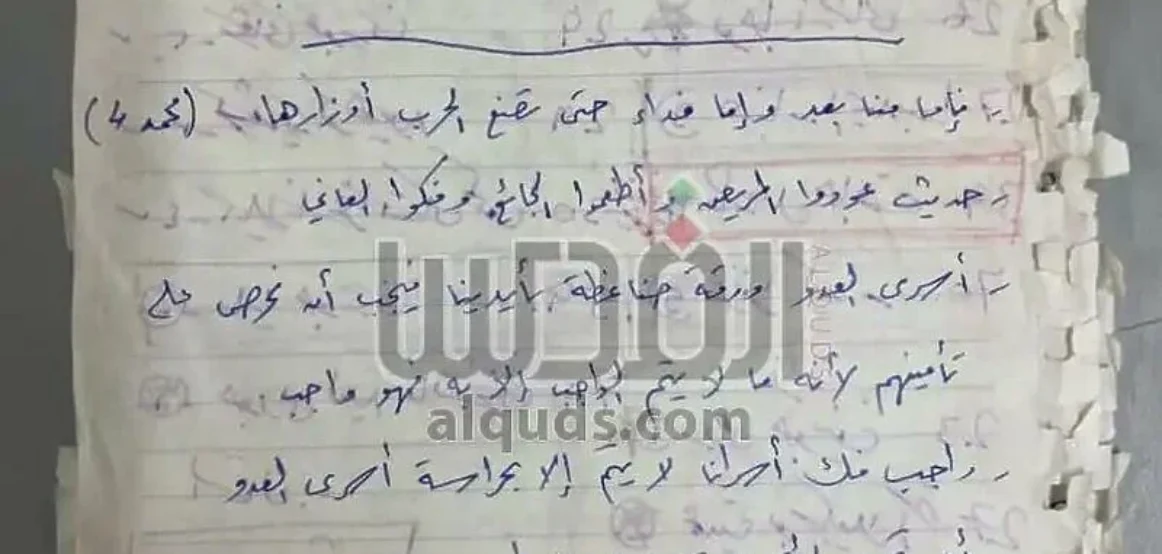 - فإما منا بعد وإما فداء حتى تضع الحرب أوزارها (محمد 4)
- حديث عودوا المريض وأطعموا الجائع وفكوا العاني
- أسرى العدو ورقة ضاغطة بأيدينا فيجب أن نحرص على
تأمينهم لأنه ما لا يتم الواجب إلا به فهو واجب.
- واجب فك أسرانا لا يتم إلا بحراسة أسرى العدو
القدس
ALQUDS
alquds.com